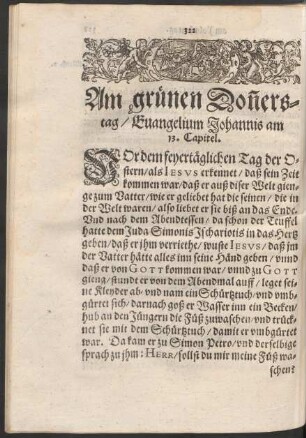 322
Am grünen Doñers-
tag / Euangelium Johannis am
13. Capitel.
VOr dem feyertäglichen Tag der O-
stern / als IESVS erkennet / daß sein Zeit
kommen war / daß er auß diser Welt gien-
ge zum Vatter / wie er geliebet hat die seinen / die in
der Welt waren / also liebet er sie biß an das Ende.
Vnd nach dem Abendtessen / da schon der Teuffel
hatte dem Juda Simonis Jschariotis in das Hertz
geben / daß er jhm verriethe / wuste IESVS / daß jm
der Vatter hätte alles inn seine Händ geben / vnnd
daß er von GOTT kommen war / vnnd zu GOTT
gieng / stundt er von dem Abendmal auff / leget sei-
ne Kleyder ab / vnd nam ein Schürtztuch / vnd vmb-
gürtet sich / darnach goß er Wasser inn ein Becken /
hub an den Jüngern die Füß zuwaschen / vnd trück-
net sie mit dem Schürtztuch / damit er vmbgürtet
war. Da kam er zu Simon Petro / vnd derselbige
sprach zu jhm: HERR / sollst du mir meine Füß wa-
schen?